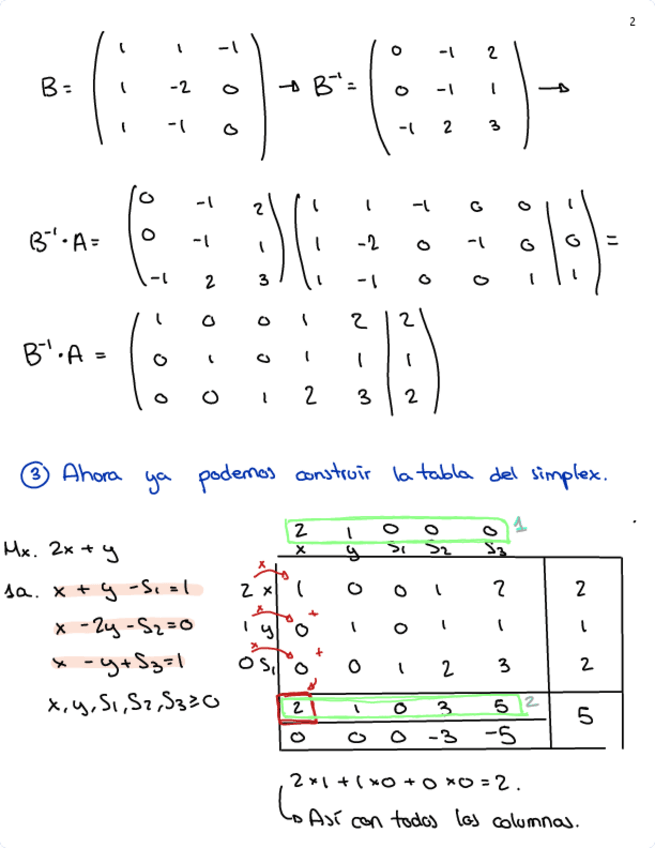 2
B = ( 1 1 -1 → B⁻¹ = ( 0 -1 2 →
1 -2 0 0 -1 1
1 -1 0 ) -1 2 3 )
B⁻¹·A = ( 0 -1 2 ( 1 1 -1 0 0 | 1 =
0 -1 1 1 -2 0 -1 0 | 0
-1 2 3 ) 1 -1 0 0 1 | 1 )
B⁻¹·A = ( 1 0 0 1 2 | 2
0 1 0 1 1 | 1
0 0 1 2 3 | 2 )
③ Ahora ya podemos construir la tabla del simplex.
Mx. 2x + y
sa. x + y - S₁ = 1
x - 2y - S₂ = 0
x - y + S₃ = 1
x, y, S₁, S₂, S₃ ≥ 0
2 1 0 0 0 1
x y S₁ S₂ S₃
x
2 x 1 0 0 1 2 2
x +
1 y 0 1 0 1 1 1
x +
0 S₁ 0 0 1 2 3 2
2 1 0 3 5 2 5
0 0 0 -3 -5
2×1 + 1×0 + 0×0 = 2.
→ Así con todos las columnas.